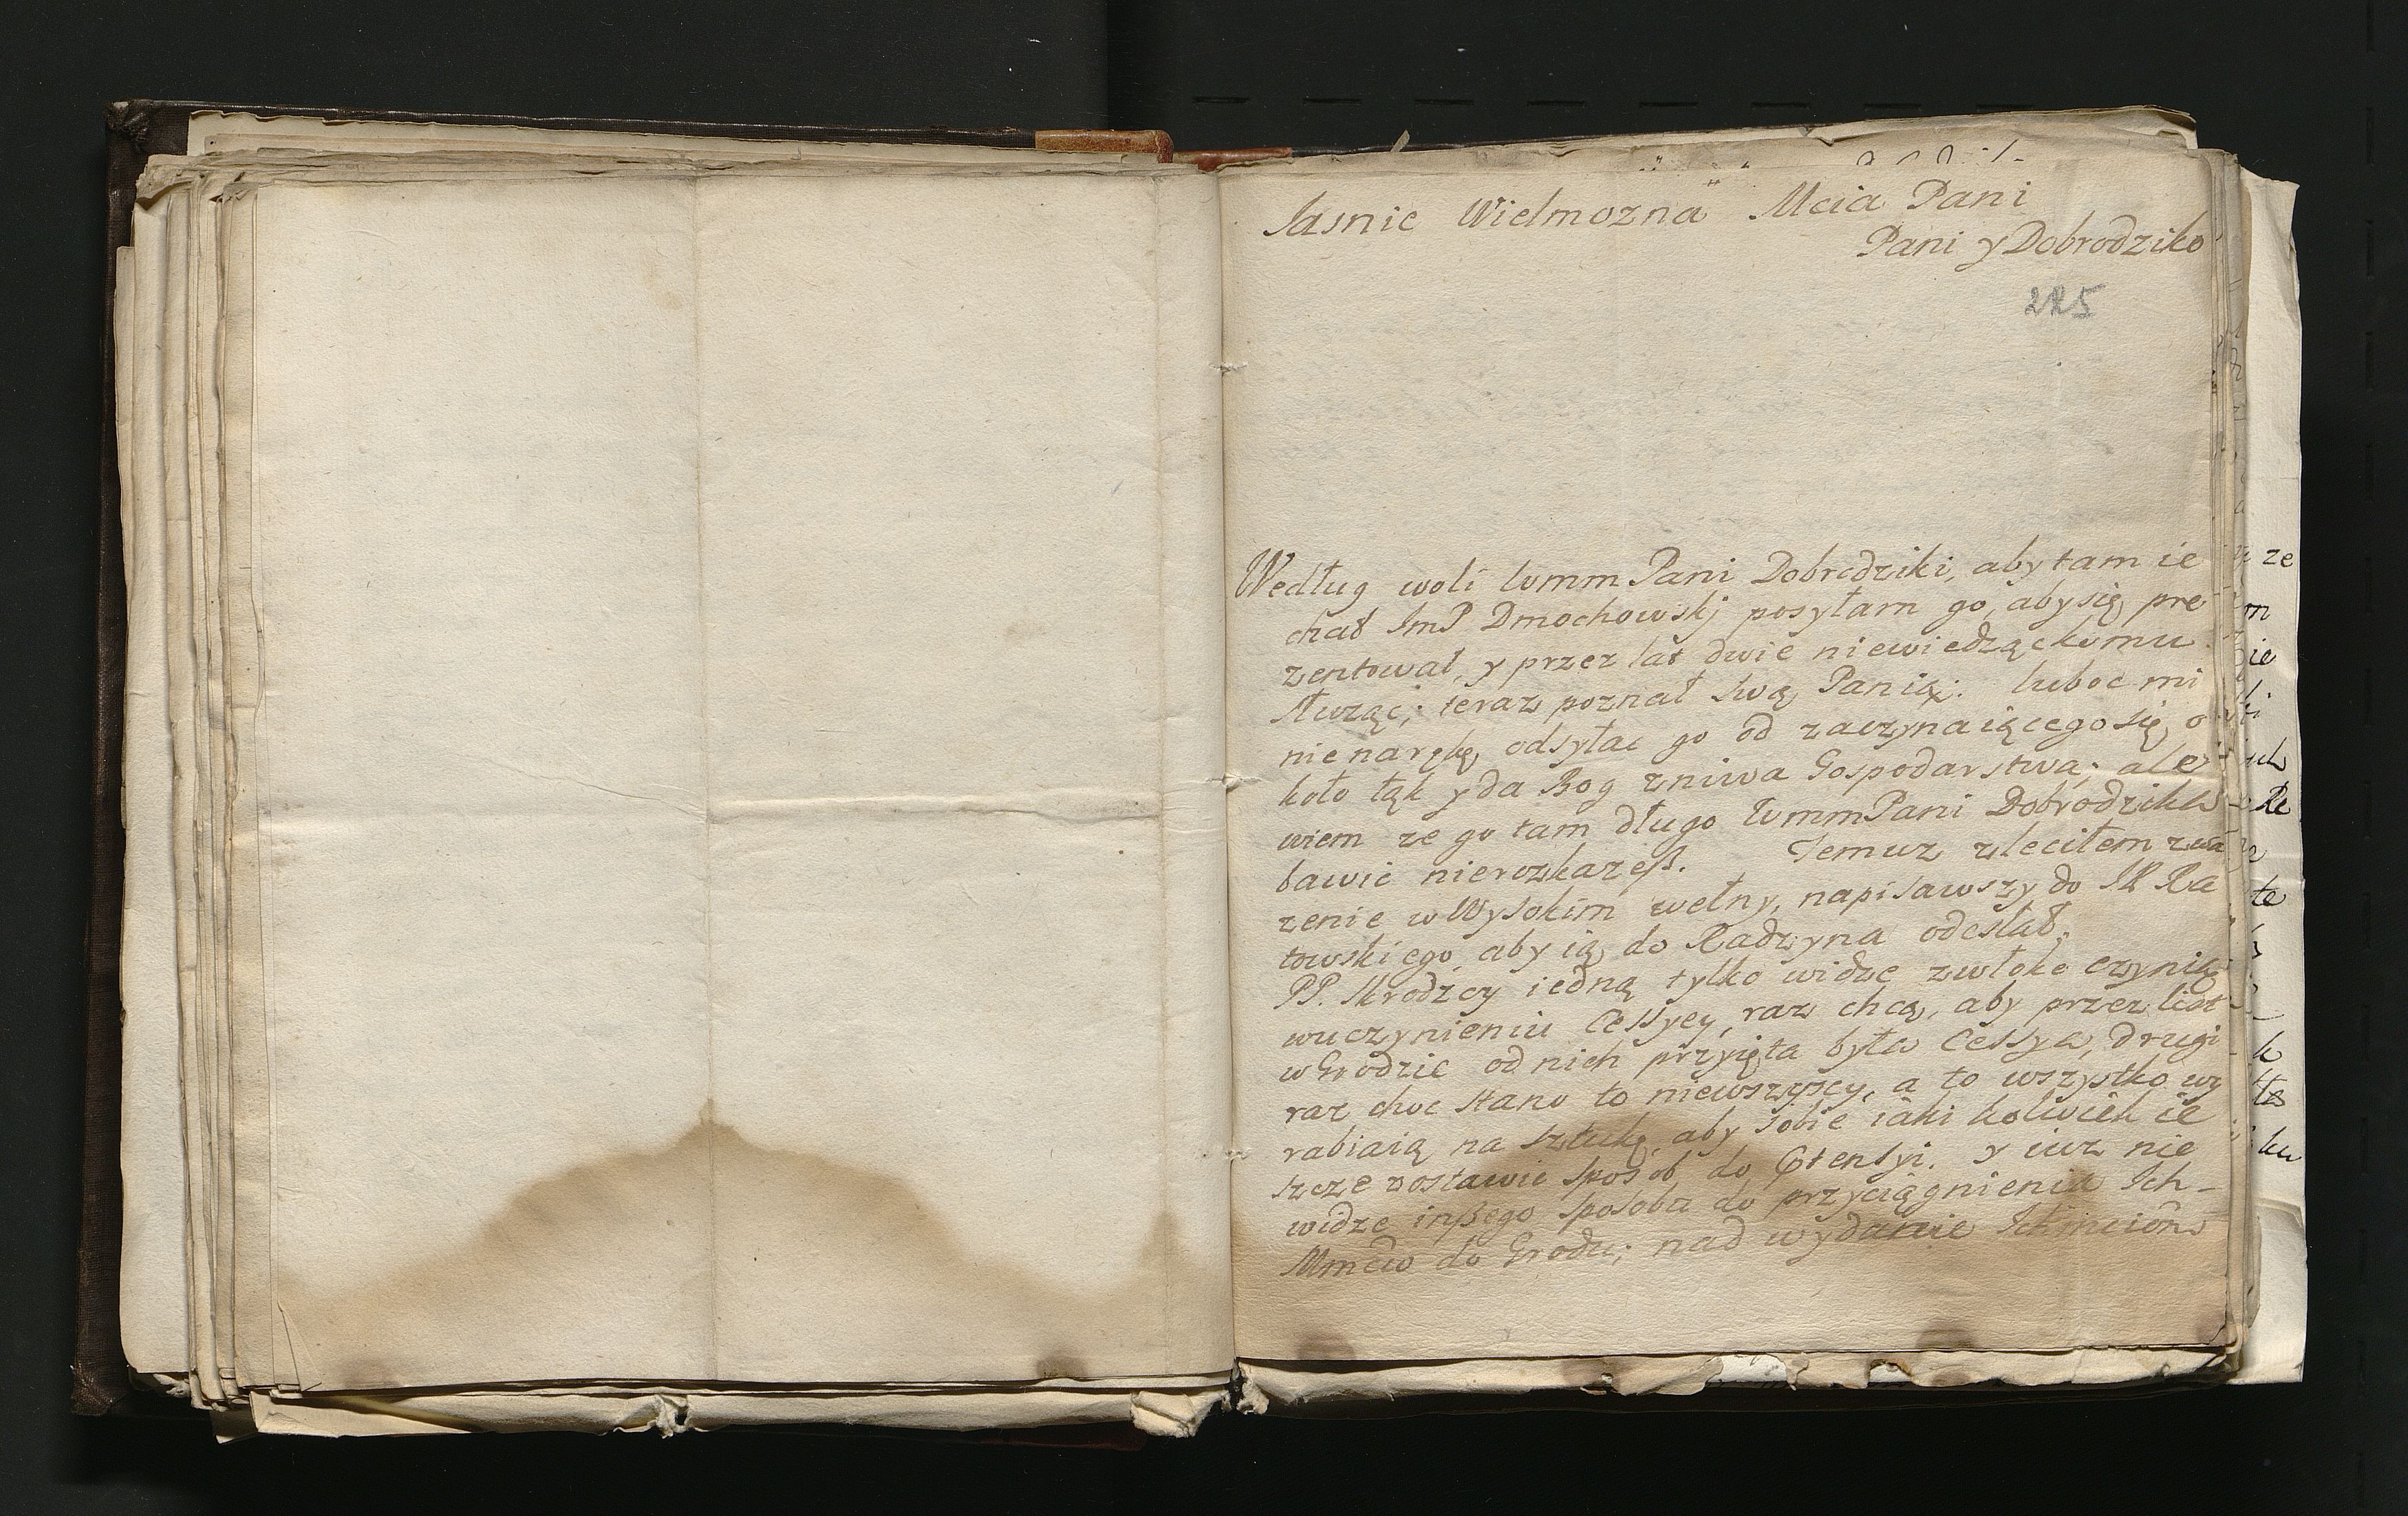 Jasnie Wielmozna Mcia Pani
Pani y Dobrodziko
225
Według woli Jwmm Pani Dobrodziki, aby tam ie
chał JmP Dmochowskj posyłam go, aby się pre
zentował, y przez lat dwie niewiedząc komu
służąc; teraz poznał swą Panią: luboc mi
nie narękę odsyłac go od zaczynaiącego się o
koło łąk y da Bog zniwa Gospodarstwa; ale
wiem ze go tam długo JwmmPani Dobrodzika
bawic nierozkazeß. Temuz zleciłem zwa
zenie w Wysokim wełny, napisawszy do JP Ra
towskiego aby ią do Radzyna odesłał.
PP. Skrodzcy iedną tylko widze zwłoke czynią
wuczynieniu Cessyey, raz chcą, aby przez list
w Grodzie od nich przyięta była Cessya, drugi
raz choc staną to niewszyscy, a to wszystko wy
rabiaią na sztukę, aby sobie iaki kolwiek ie
szcze zostawic sposob do Ptensyi. y iuz nie
widze inßego sposobu do przyciągnienia Ich-
Mmciow do Grodu; nad wydanie Ichmciom